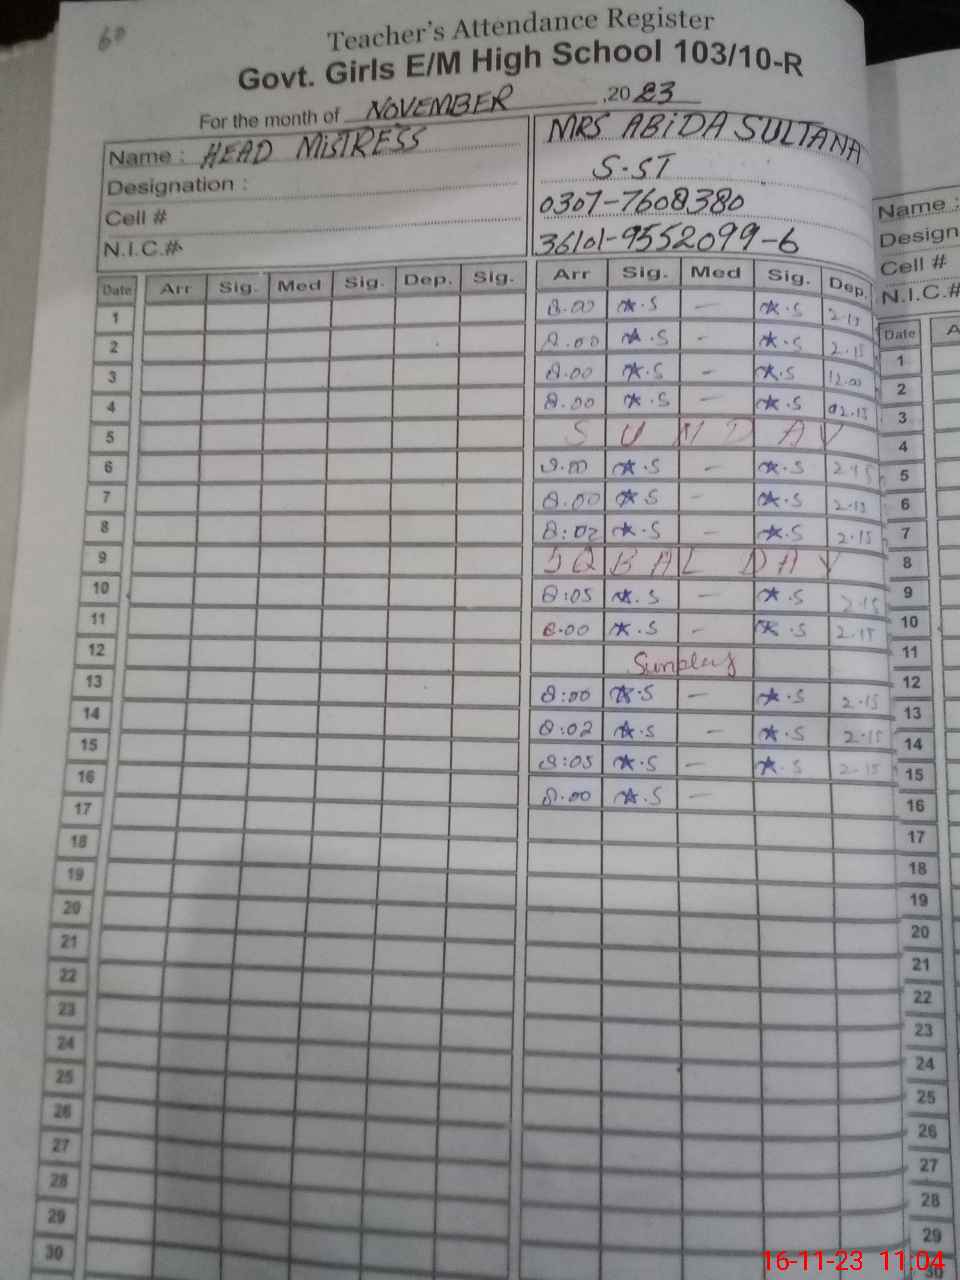 60
Teacher's Attendance Register
Govt. Girls E/M High School 103/10-R
For the month of NOVEMBER ,20 23
Name : HEAD MISTRESS
Designation :
Cell #
N.I.C.#
MRS ABIDA SULTANA
S.ST
0307-7608380
36101-9552099-6
Date Arr Sig. Med Sig. Dep. Sig. Arr Sig. Med Sig. Dep.
1 8.00 ★.S — ★.S 2.15
2 8.00 ★.S - ★.S 2.15
3 8.00 ★.S - ★.S 12.00
4 8.00 ★.S — ★.S 02.15
5 SUNDAY
6 ★.S — ★.S 2.15
7 8.00 ★ S - ★.S 2.15
8 8:02 ★.S - ★.S 2.15
9 IQBAL DAY
10 8:05 ★.S — ★.S 2.15
11 8.00 ★.S - ★.S 2.15
12 Sunday
13 8:00 ★.S — ★.S 2.15
14 8:02 ★.S — ★.S 2.15
15 8:05 ★.S — ★.S 2.15
16 8.00 ★.S —
17
18
19
20
21
22
23
24
25
26
27
28
29
30
Name :
Design
Cell #
N.I.C.#
Date A
1
2
3
4
5
6
7
8
9
10
11
12
13
14
15
16
17
18
19
20
21
22
23
24
25
26
27
28
29
30
16-11-23 11:04